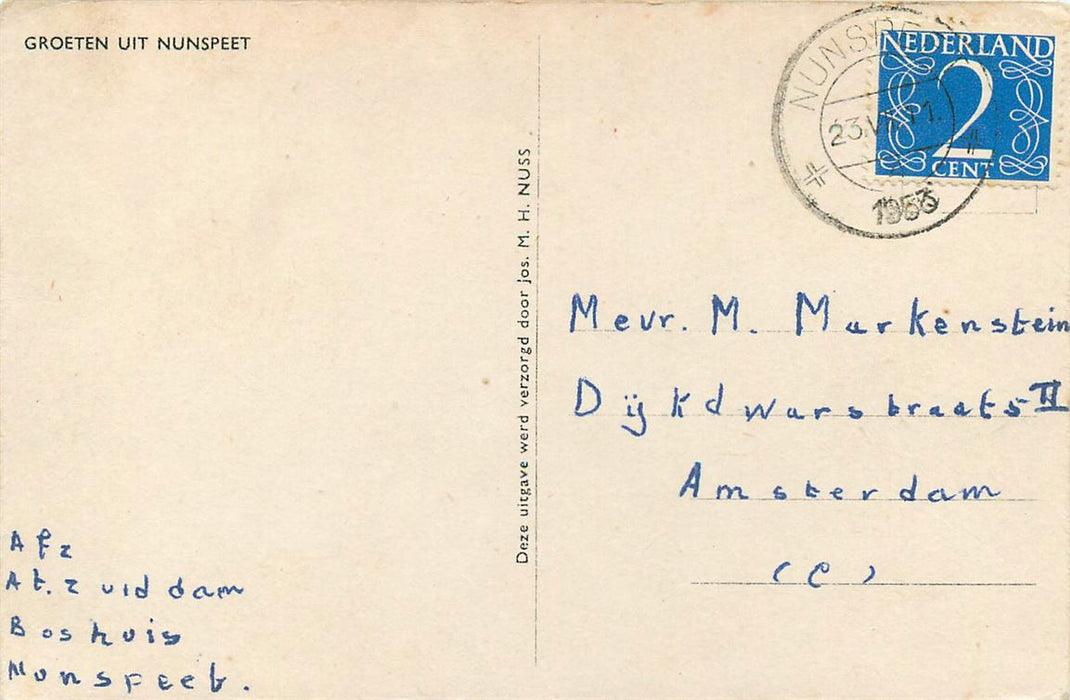 GROETEN UIT NUNSPEET
NEDERLAND
2
CENT
NUNSPEET
1953
Deze uitgave werd verzorgd door Jos. M. H. NUSS.
Mevr. M. Markenstein
Dijkdwarstraat 5 II
Amsterdam
(C)
Afz
At. Zuiddam
Boshuis
Nunspeet.